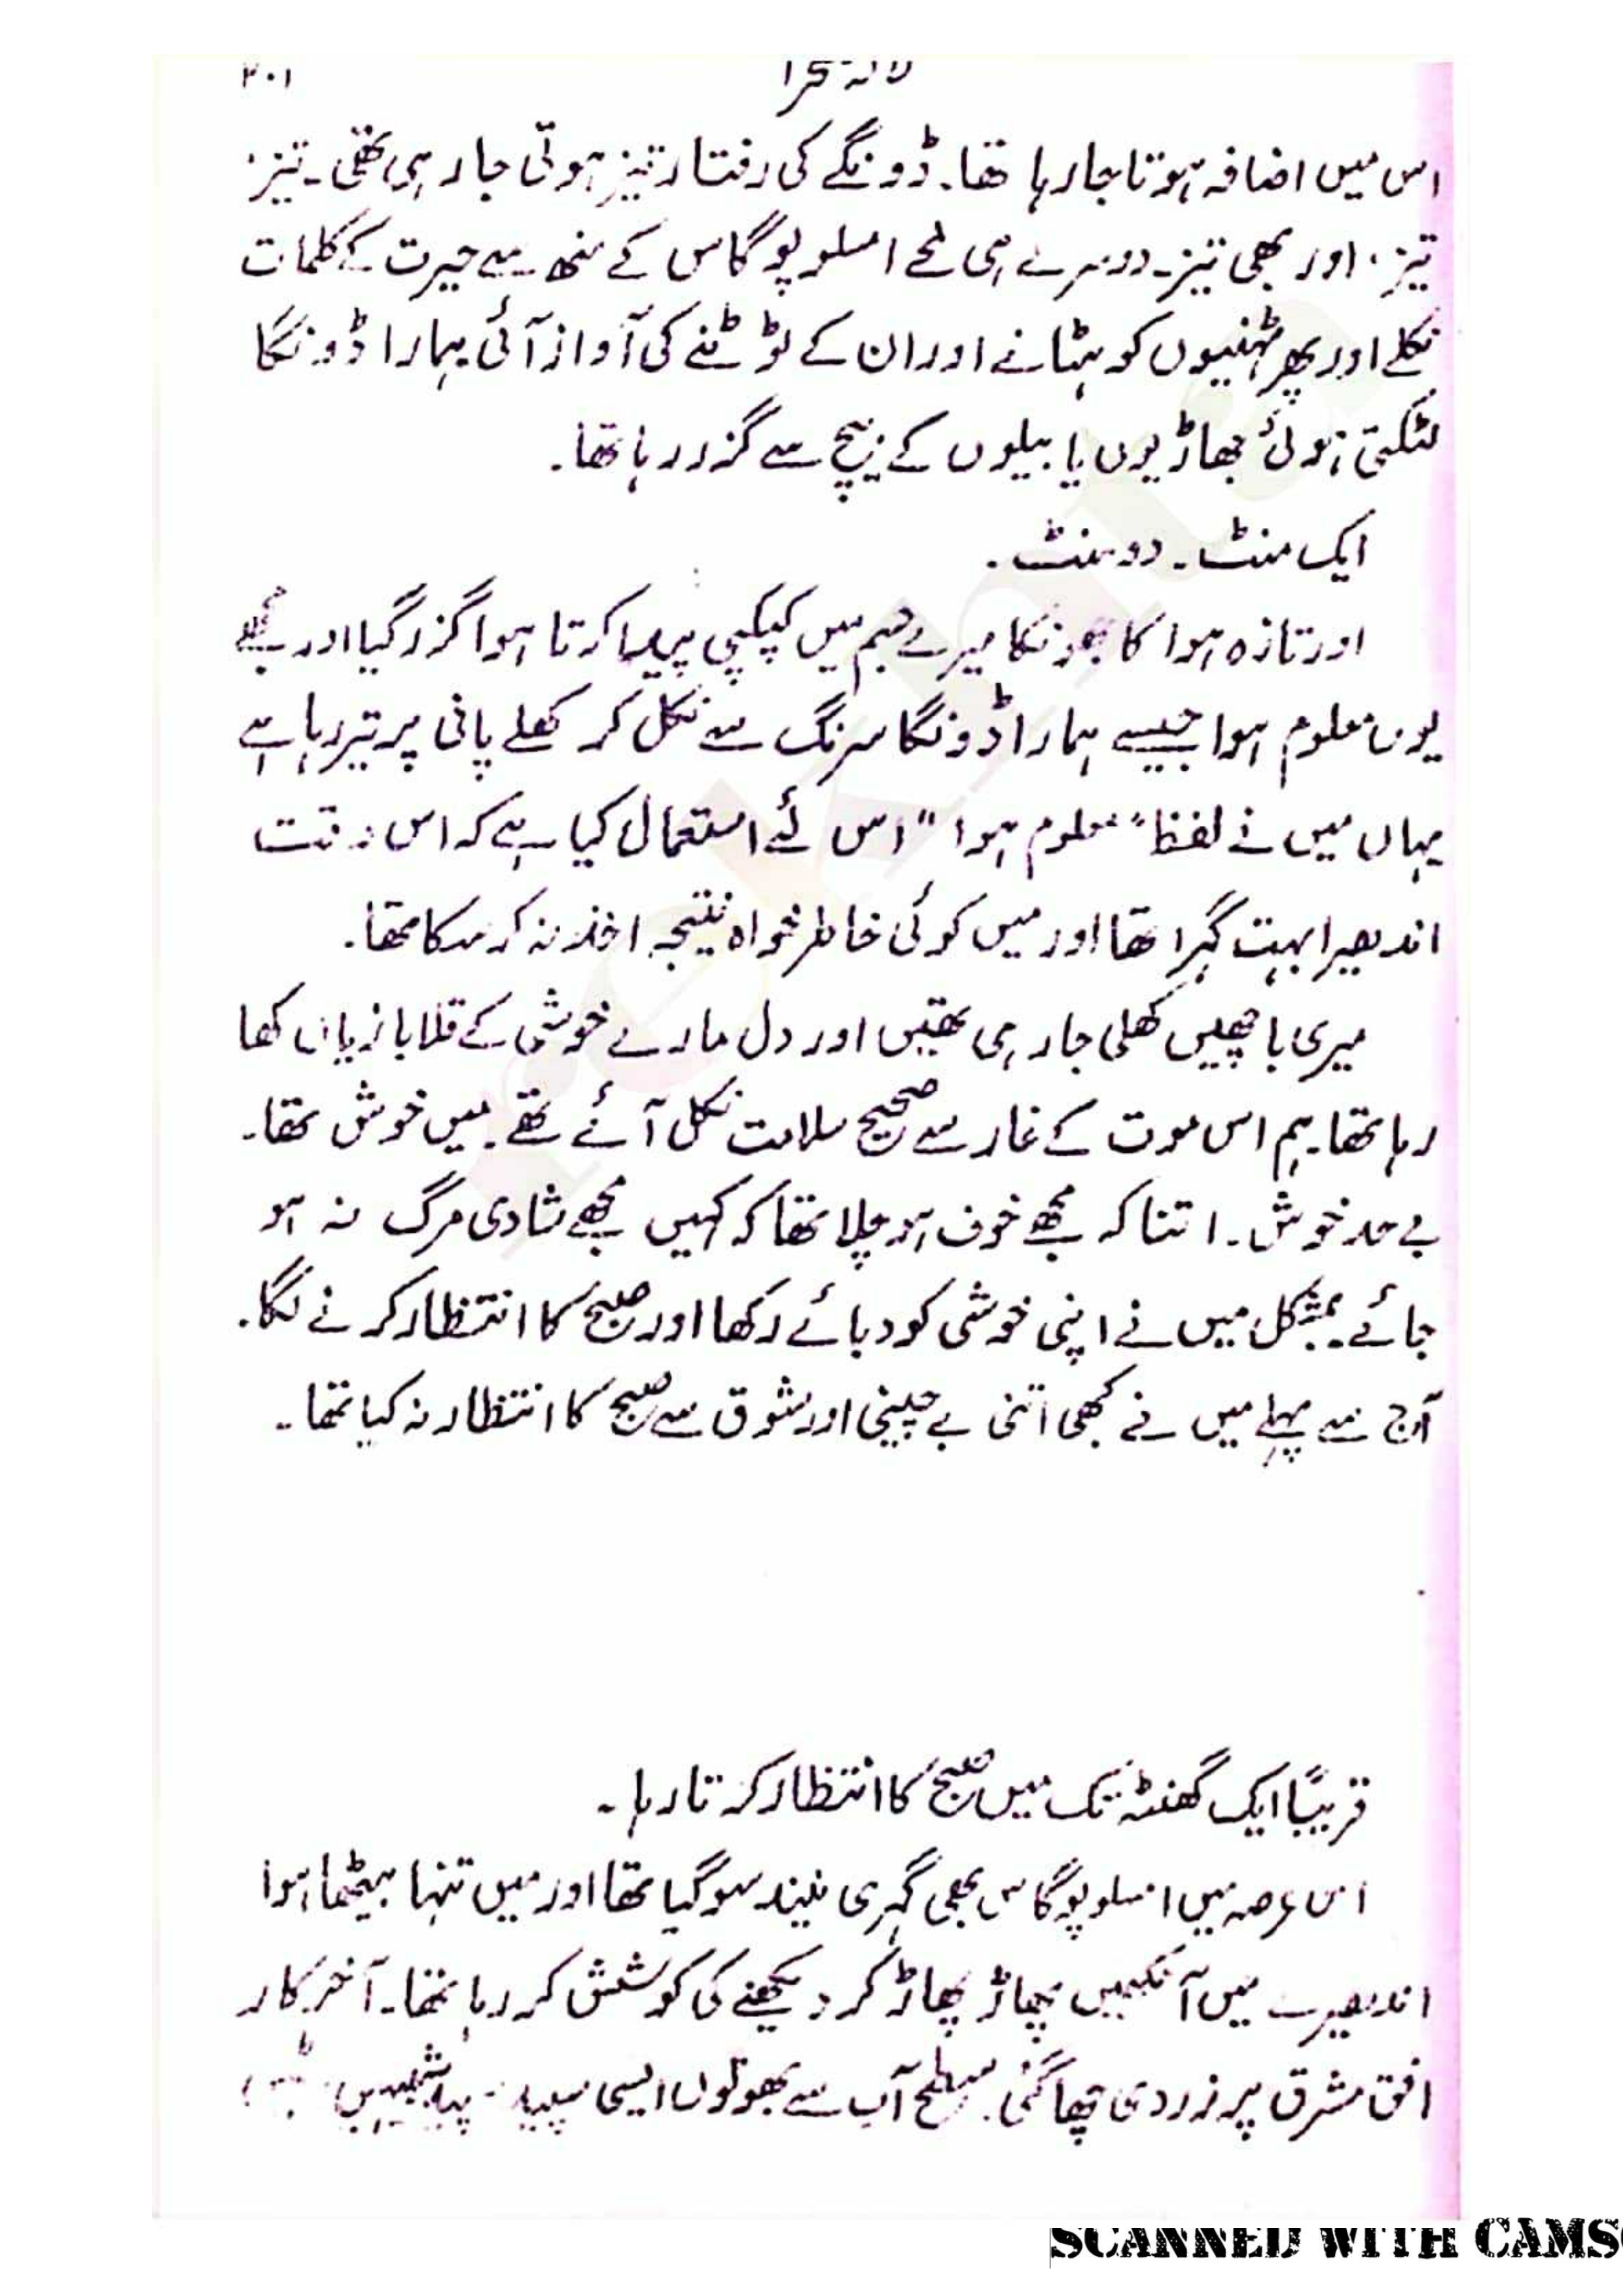 لالہ صحرا ۳۰۱
اس میں اضافہ ہوتا جا رہا تھا۔ ڈونگے کی رفتار تیز ہوتی جا رہی تھی۔ تیز،
تیز، اور بھی تیز۔ دوسرے ہی لمحے امسلوپوگاس کے منھ سے حیرت کے کلمات
نکلے اور پھر ٹہنیوں کو ہٹانے اور ان کے ٹوٹنے کی آواز آئی ہمارا ڈونگا
لٹکتی ہوئی جھاڑیوں یا بیلوں کے نیچے سے گزر رہا تھا۔
ایک منٹ۔ دو منٹ۔
اور تازہ ہوا کا جھونکا میرے جسم میں کپکپی پیدا کرتا ہوا گزر گیا اور مجھے
یوں معلوم ہوا جیسے ہمارا ڈونگا سرنگ سے نکل کر کھلے پانی پر تیر رہا ہے
یہاں میں نے لفظ "معلوم ہوا" اس لئے استعمال کیا ہے کہ اس وقت
اندھیرا بہت گہرا تھا اور میں کوئی خاطر خواہ نتیجہ اخذ نہ کر سکا تھا۔
میری باچھیں کھلی جا رہی تھیں اور دل مارے خوشی کے قلابازیاں کھا
رہا تھا۔ ہم اس موت کے غار سے صحیح سلامت نکل آئے تھے۔ میں خوش تھا۔
بے حد خوش۔ اتنا کہ مجھے خوف ہو چلا تھا کہ کہیں مجھے شادی مرگ نہ ہو
جائے۔ بمشکل میں نے اپنی خوشی کو دبائے رکھا اور صبح کا انتظار کرنے لگا۔
آج سے پہلے میں نے کبھی اتنی بے چینی اور شوق سے صبح کا انتظار نہ کیا تھا۔
قریباً ایک گھنٹہ تک میں صبح کا انتظار کرتا رہا۔
اس عرصہ میں امسلوپوگاس بھی گہری نیند سو گیا تھا اور میں تنہا بیٹھا ہوا
اندھیرے میں آنکھیں پھاڑ پھاڑ کر دیکھنے کی کوشش کر رہا تھا۔ آخر کار
افق مشرق پر زردی چھا گئی۔ سطح آب سے بھوتوں ایسی سپید
SCANNED WITH CAMS